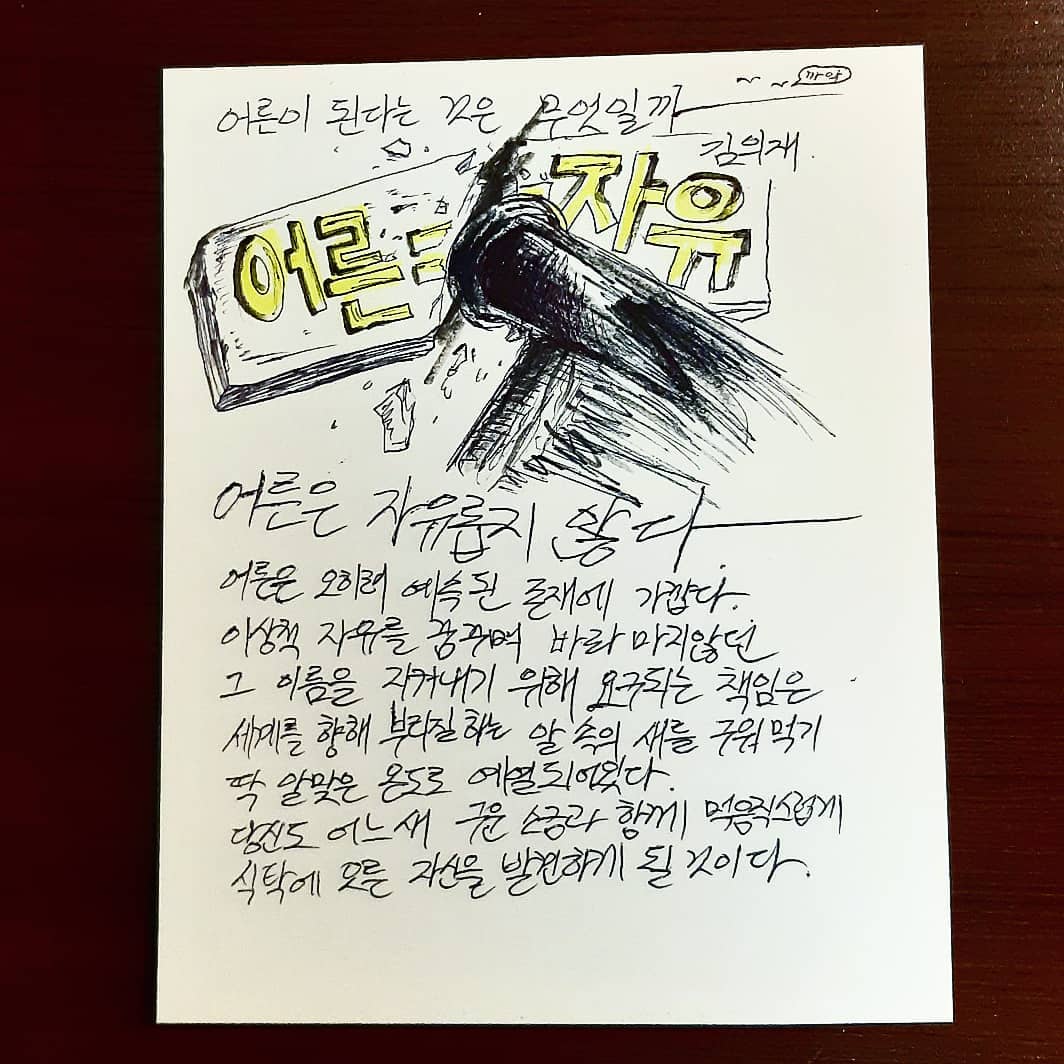 까악
어른이 된다는 것은 무엇일까
김의재.
어른=자유
어른은 자유롭지 않다
어른은 오히려 예속된 존재에 가깝다.
이상적 자유를 꿈꾸며 바라 마지않던
그 이름을 지켜내기 위해 요구되는 책임은
세계를 향해 부리질하는 알 속의 새를 구워 먹기
딱 알맞은 온도로 예열되어왔다.
당신도 어느새 구운 소금과 함께 먹음직스럽게
식탁에 오른 자신을 발견하게 될 것이다.